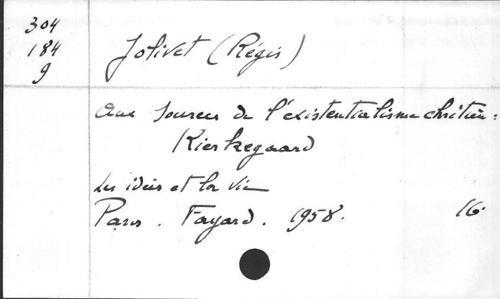 304
184
9
Jolivet (Régis)
Aux sources de l'existentialisme chrétien :
Kierkegaard
Les idées et la vie
Paris. Fayard. 1958. 16